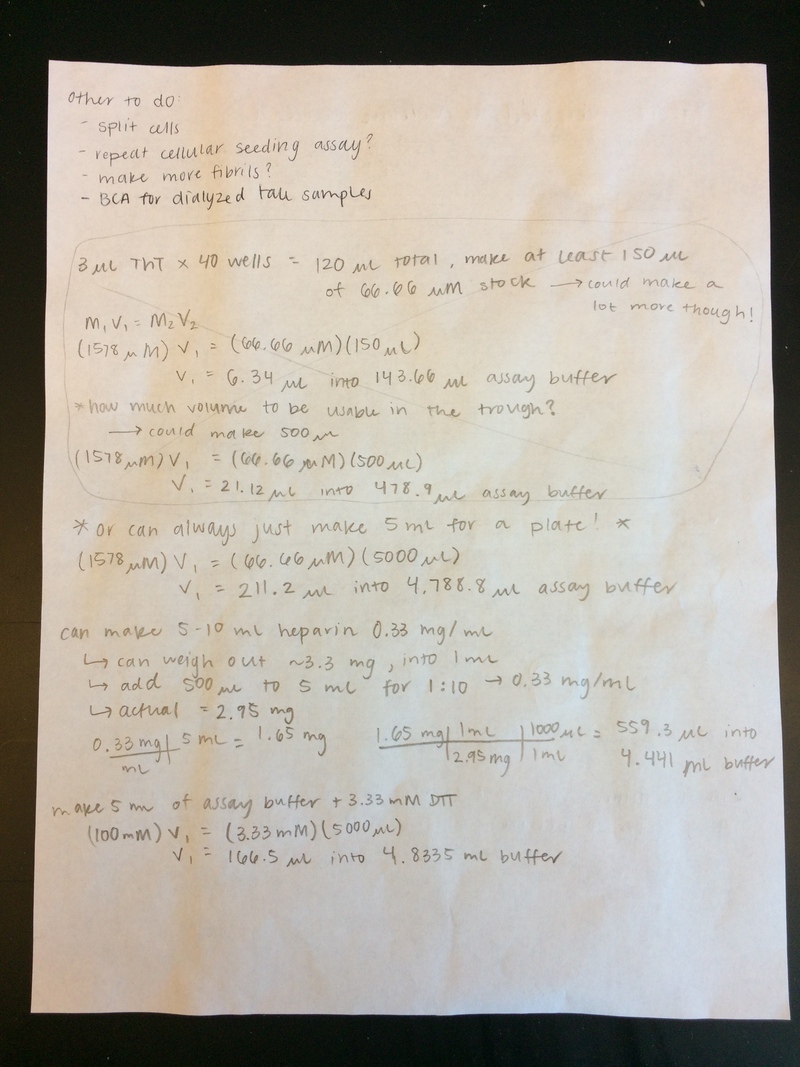 Other to do:
- split cells
- repeat cellular seeding assay?
- make more fibrils?
- BCA for dialyzed tau samples
3 uL ThT x 40 wells = 120 uL total, make at least 150 uL
of 66.66 uM stock → could make a
lot more though!
M₁V₁ = M₂V₂
(1578 uM) V₁ = (66.66 uM)(150 uL)
V₁ = 6.34 uL into 143.66 uL assay buffer
*how much volume to be usable in the trough?
→ could make 500 uL
(1578 uM) V₁ = (66.66 uM)(500 uL)
V₁ = 21.12 uL into 478.9 uL assay buffer
* or can always just make 5 mL for a plate! *
(1578 uM) V₁ = (66.66 uM)(5000 uL)
V₁ = 211.2 uL into 4,788.8 uL assay buffer
can make 5-10 mL heparin 0.33 mg/mL
↳ can weigh out ~3.3 mg, into 1 mL
↳ add 500 uL to 5 mL for 1:10 → 0.33 mg/mL
↳ actual = 2.95 mg
0.33 mg | 5 mL = 1.65 mg 1.65 mg | 1 mL | 1000 uL = 559.3 uL into
mL 2.95 mg | 1 mL 4.441 mL buffer
make 5 mL of assay buffer + 3.33 mM DTT
(100 mM) V₁ = (3.33 mM)(5000 uL)
V₁ = 166.5 uL into 4.8335 mL buffer